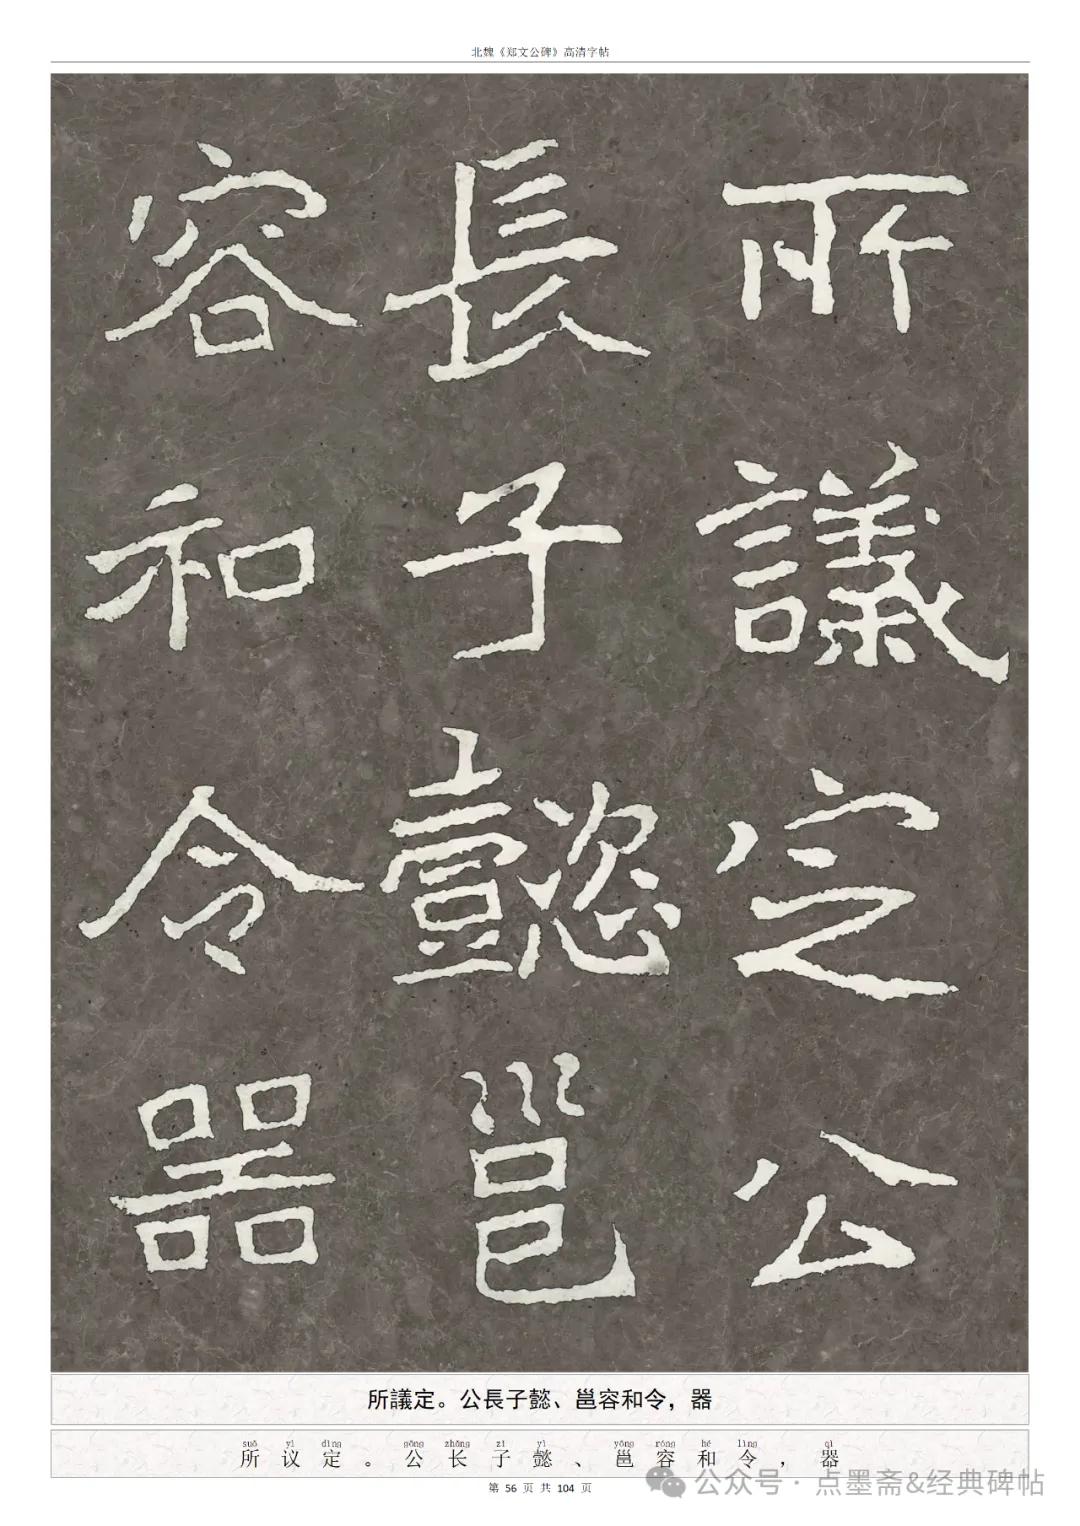 北魏《郑文公碑》高清字帖
所議定公
長子懿邕
容和令器
所議定。公長子懿、邕容和令，器
suǒ yì dìng gōng zhǎng zǐ yì yōng róng hé lìng qì
所议定。公长子懿、邕容和令，器
第 56 页 共 104 页
公众号 · 点墨斋&经典碑帖